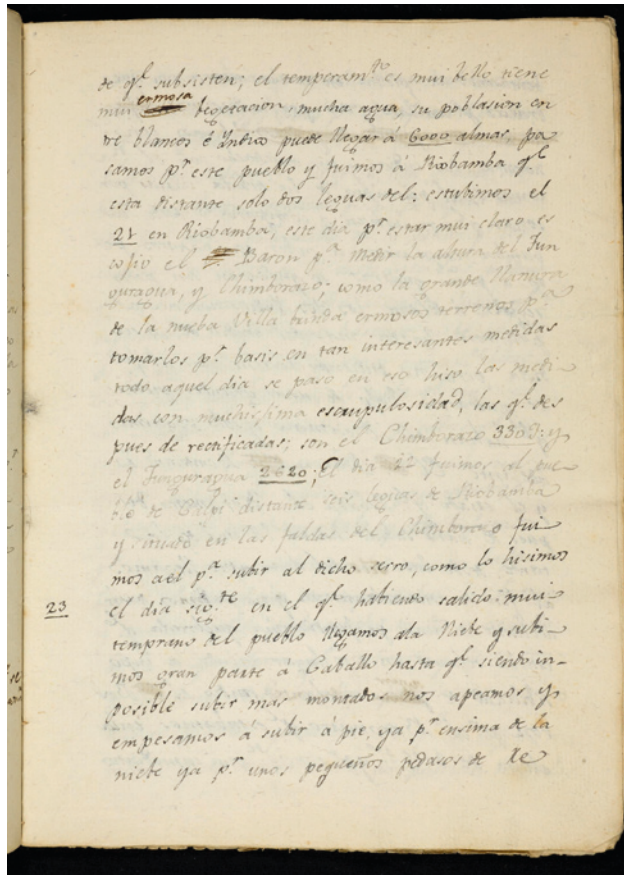 de q.e subsisten; el temperam.to es mui bello tiene
mui ermosa begetacion, mucha agua, su poblasion en
tre blancos é Yndios puede llegar á 6000 almas, pa
samos p.r este pueblo y fuimos á Riobamba q.e
esta distante solo dos leguas del: estubimos el
21 en Riobamba, este dia p.r estar mui claro es
cojio el Baron p.a medir la altura del Tun
guragua, y Chimboraso; como la grande llanura
de la nueba Villa brinda ermosos terrenos p.a
tomarlos p.r basis en tan interesantes medidas
todo aquel dia se paso en eso hiso las medi
das con muchissima escrupulosidad, las q.e des
pues de rectificadas; son el Chimboraso y
el Tunguragua 2620; El dia 22 fuimos al pue
blo de distante seis leguas de Riobamba
y situado en las faldas del Chimboraso fui
mos a el p.a subir al dicho serro, como lo hisimos
23 el dia sig.te en el q.e habiendo salido mui
temprano del pueblo llegamos ala Niebe y subi
mos gran parte á Caballo hasta q.e siendo in-
posible subir mas montados nos apeamos y
empesamos á subir á pie, ya p.r ensima de la
niebe ya p.r unos pequeños pedasos de